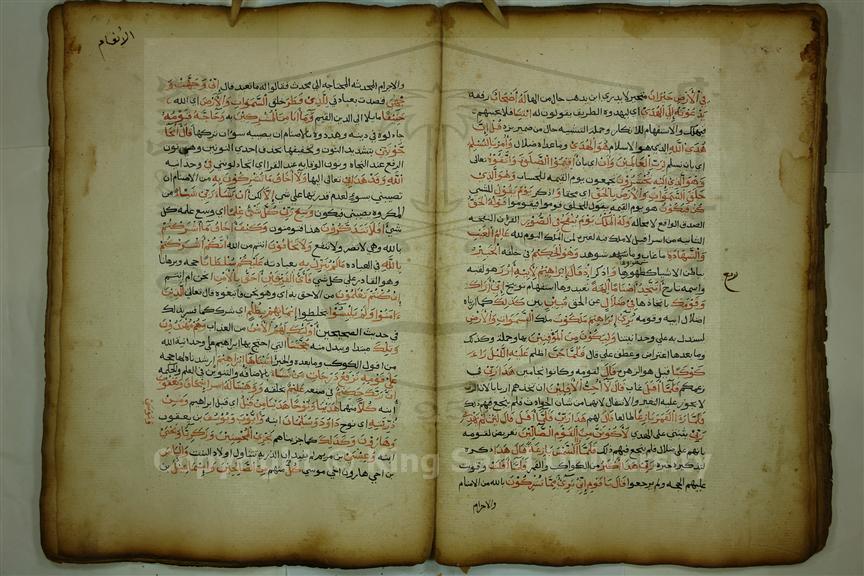 في الأرض حيران متحير لا يدري اين يذهب حال من الها له أصحاب رفقة
يدعونه إلى الهدى اي ليهدوه الطريق يقولون له ائتنا فلا يجيبهم
فيهلك والاستفهام للانكار وجملة التشبيه حال من ضمير نرد قل إن
هدى الله الذي هو الاسلام هو الهدى وما عداه ضلال وأمرنا لنسلم
اي بان نسلم لرب العالمين وأن اي بان أقيموا الصلوة واتقوه تعالى
وهو الذي إليه تحشرون تجمعون يوم القيمة للحساب وهو الذي
خلق السموات والأرض بالحق اي محقا و اذكر يوم يقول للشي
كن فيكون هو يوم القيمة يقول للخلق قوموا فيقوموا قوله الحق
الصدق الواقع لا محالة وله الملك يوم ينفخ في الصور القرن النفخة
الثانية من اسرافيل لا ملك فيه لغيره لمن الملك اليوم لله عالم الغيب
والشهادة ما غاب وما شوهد وهو الحكيم في خلقه الخبير
بباطن الاشيا كظاهرها و اذكر إذ قال إبراهيم لأبيه آزر هو لقبه
واسمه تارخ أتتخذ أصناما آلهة تعبدها استفهام توبيخ إني أراك
وقومك باتخاذها في ضلال عن الحق مبين بين كذلك كما اريناه
اضلال ابيه وقومه نري إبراهيم ملكوت ملك السموات والأرض
ليستدل به على وحدانيتنا وليكون من الموقنين بها وجملة وكذلك
وما بعدها اعتراض وعطف على قال فلما جن اظلم عليه الليل رأى
كوكبا قيل هو الزهرة قال لقومه وكانوا نجامين هذا ربي في
زعمكم فلما أفل غاب قال لا أحب الآفلين ان اتخذهم اربابا لان الرب
لا يجوز عليه التغير والانتقال لانهما من شان الحوادث فلم ينجع فيهم ذلك
فلما رأى القمر بازغا طالعا قال لهم هذا ربي فلما أفل قال لئن لم يهدني
ربي يثبتني على الهدى لأكونن من القوم الضالين تعريض لقومه
بانهم على ضلال فلم ينجع فيهم ذلك فلما رأى الشمس بازغة قال هذا ذكره
لتذكير خبره ربي هذا أكبر من الكواكب والقمر فلما أفلت وقويت
عليهم الحجة ولم يرجعوا قال يا قوم إني بريء مما تشركون بالله من الاصنام
والاجرام
ربع
الانعام
والاجرام المحدثة المحتاجة الى محدث فقالوا له ما تعبد قال إني وجهت و
جهي قصدت بعبادتي للذي فطر خلق السموات والأرض اي الله
حنيفا مايلا الى الدين القيم وما أنا من المشركين به وحاجه قومه
جادلوه في دينه وهددوه بالاصنام ان تصيبه بسوء ان تركها قال أتحا
جوني بتشديد النون وتخفيفها بحذف احدى النونين وهي نون
الرفع عند النحاة ونون الوقاية عند القراء اي اتجادلونني في وحدانية
الله وقد هدان تعالى اليها ولا أخاف ما تشركون به من الاصنام ان
تصيبني بسوء لعدم قدرتها على شي إلا لكن أن يشاء ربي شيئا من
المكروه يصيبني فيكون وسع ربي كل شيء علما اي وسع علمه كل
شئ أفلا تتذكرون هذا فتومنون وكيف أخاف ما أشركتم
بالله وهي لا تضر ولا تنفع ولا تخافون انتم من الله أنكم أشركتم
بالله في العبادة ما لم ينزل به بعبادته عليكم سلطانا حجة وبرهانا
وهو القادر على كل شي فأي الفريقين أحق بالأمن انحن ام انتم
إن كنتم تعلمون من الاحق به اي وهو نحن فاتبعوه قال تعالى الذين
آمنوا ولم يلبسوا يخلطوا إيمانهم بظلم اي شرك كما فسر بذلك
في حديث الصحيحين أولئك لهم الأمن من العذاب وهم مهتدون
وتلك مبتدا ويبدل منه حجتنا التي احتج بها ابراهيم على وحدانية الله
من افول الكوكب وما بعده والخبر آتيناها إبراهيم ارشدناه لها حجة
على قومه نرفع درجات من نشاء بالاضافة والتنوين في العلم والحكمة
إن ربك حكيم في صنعه عليم بخلقه ووهبنا له إسحاق ويعقوب
ابنه كلا منهما هدينا ونوحا هدينا من قبل اي قبل ابراهيم ومن
ذريته اي نوح داود وسليمان ابنه وأيوب ويوسف بن يعقوب
وموسى وهارون وكذلك كما جزيناهم نجزي المحسنين وزكريا ويحيى
ابنه وعيسى بن مريم يفيد ان الذرية تتناول اولاد البنت وإلياس
بن اخي هارون اخي موسى كل منهم من الصالحين وإسماعيل بن